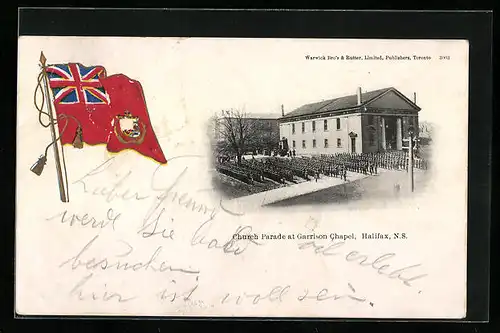 Warwick Bro's & Rutter, Limited, Publishers, Toronto
Church Parade at Garrison Chapel, Halifax, N.S.
Lieber Freund
werde Sie bald
besuchen
hier ist wohl sein.